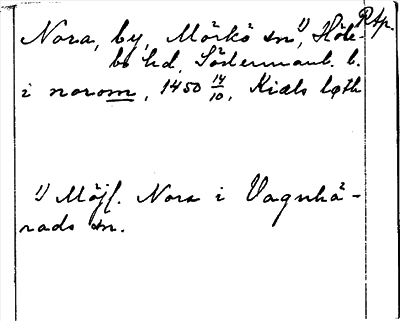 Nora, by, Mörkö sn¹⁾, Höle-
bo hd, Södermanl. l.
i norom, 1450 14/10, Kiæls
RAp.
¹⁾ Möjl. Nora i Vagnhä-
rads sn.